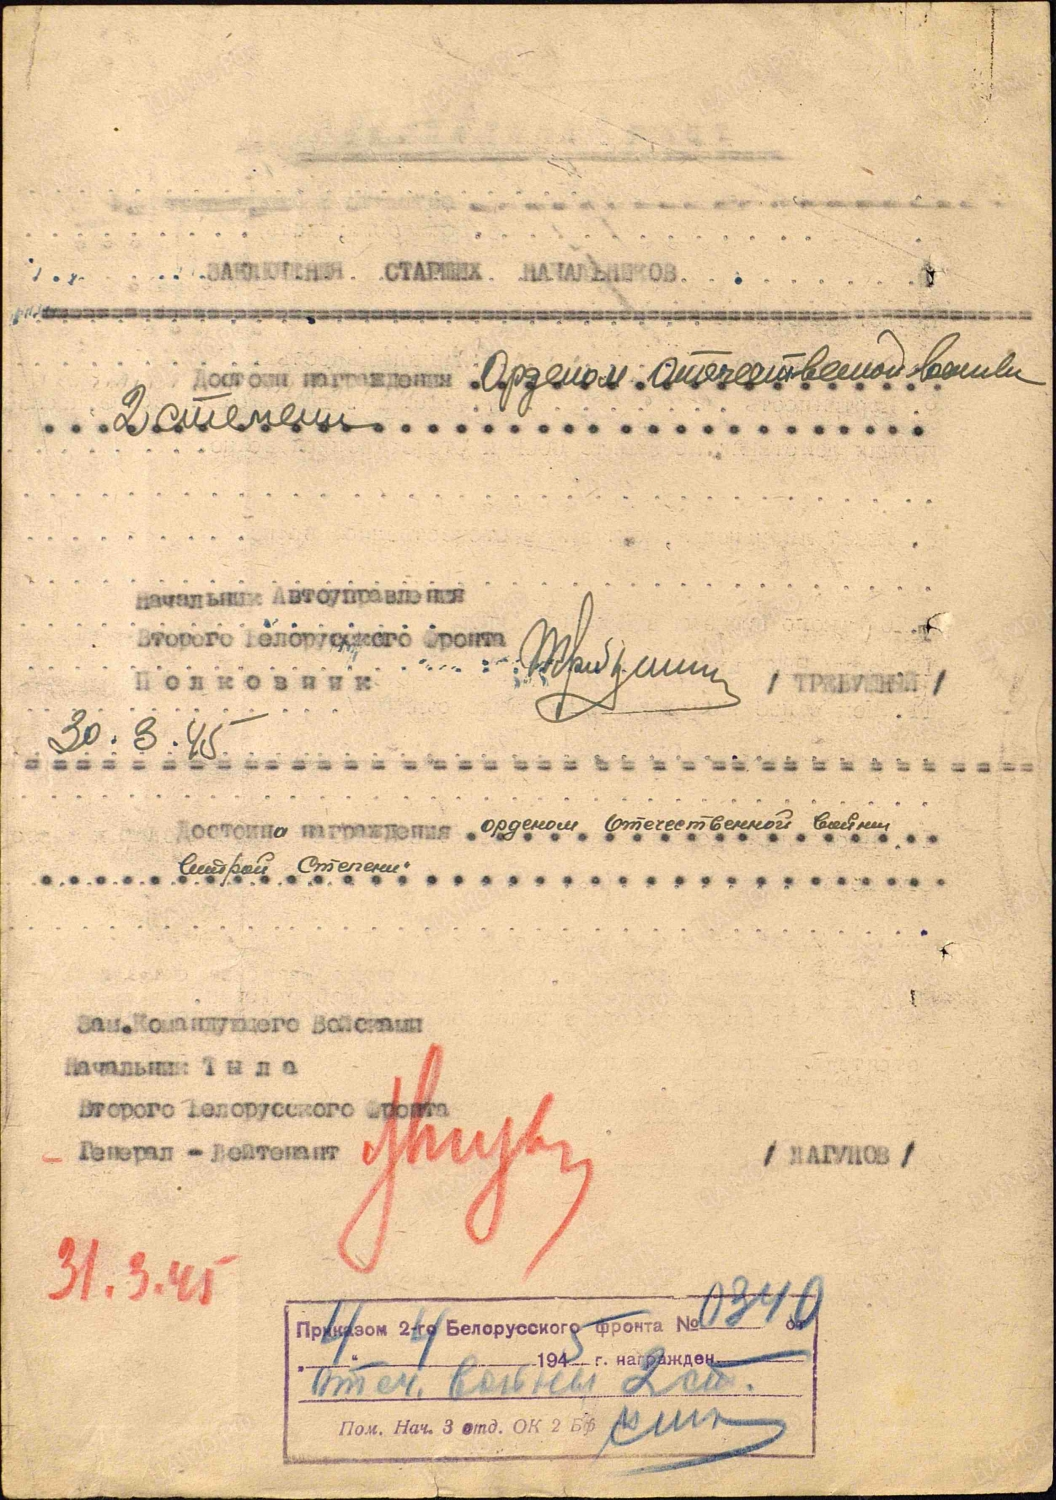 ЗАКЛЮЧЕНИЯ СТАРШИХ НАЧАЛЬНИКОВ
Достоин награждения Орденом отечественной войны
2 степени
Начальник Автоуправления
Второго Белорусского Фронта
Полковник / ТРЕБУШНЫЙ /
30.3.45
Достойно награждения орденом Отечественной войны
второй степени.
Зам.Командующего Войсками
Начальник Тыла
Второго Белорусского Фронта
Генерал - Лейтенант / ЛАГУНОВ /
31.3.45
Приказом 2-го Белорусского фронта № 0340 от
„4“ 4 1945 г. награжден
Отеч. войны 2 ст.
Пом. Нач. 3 отд. ОК 2 БФ